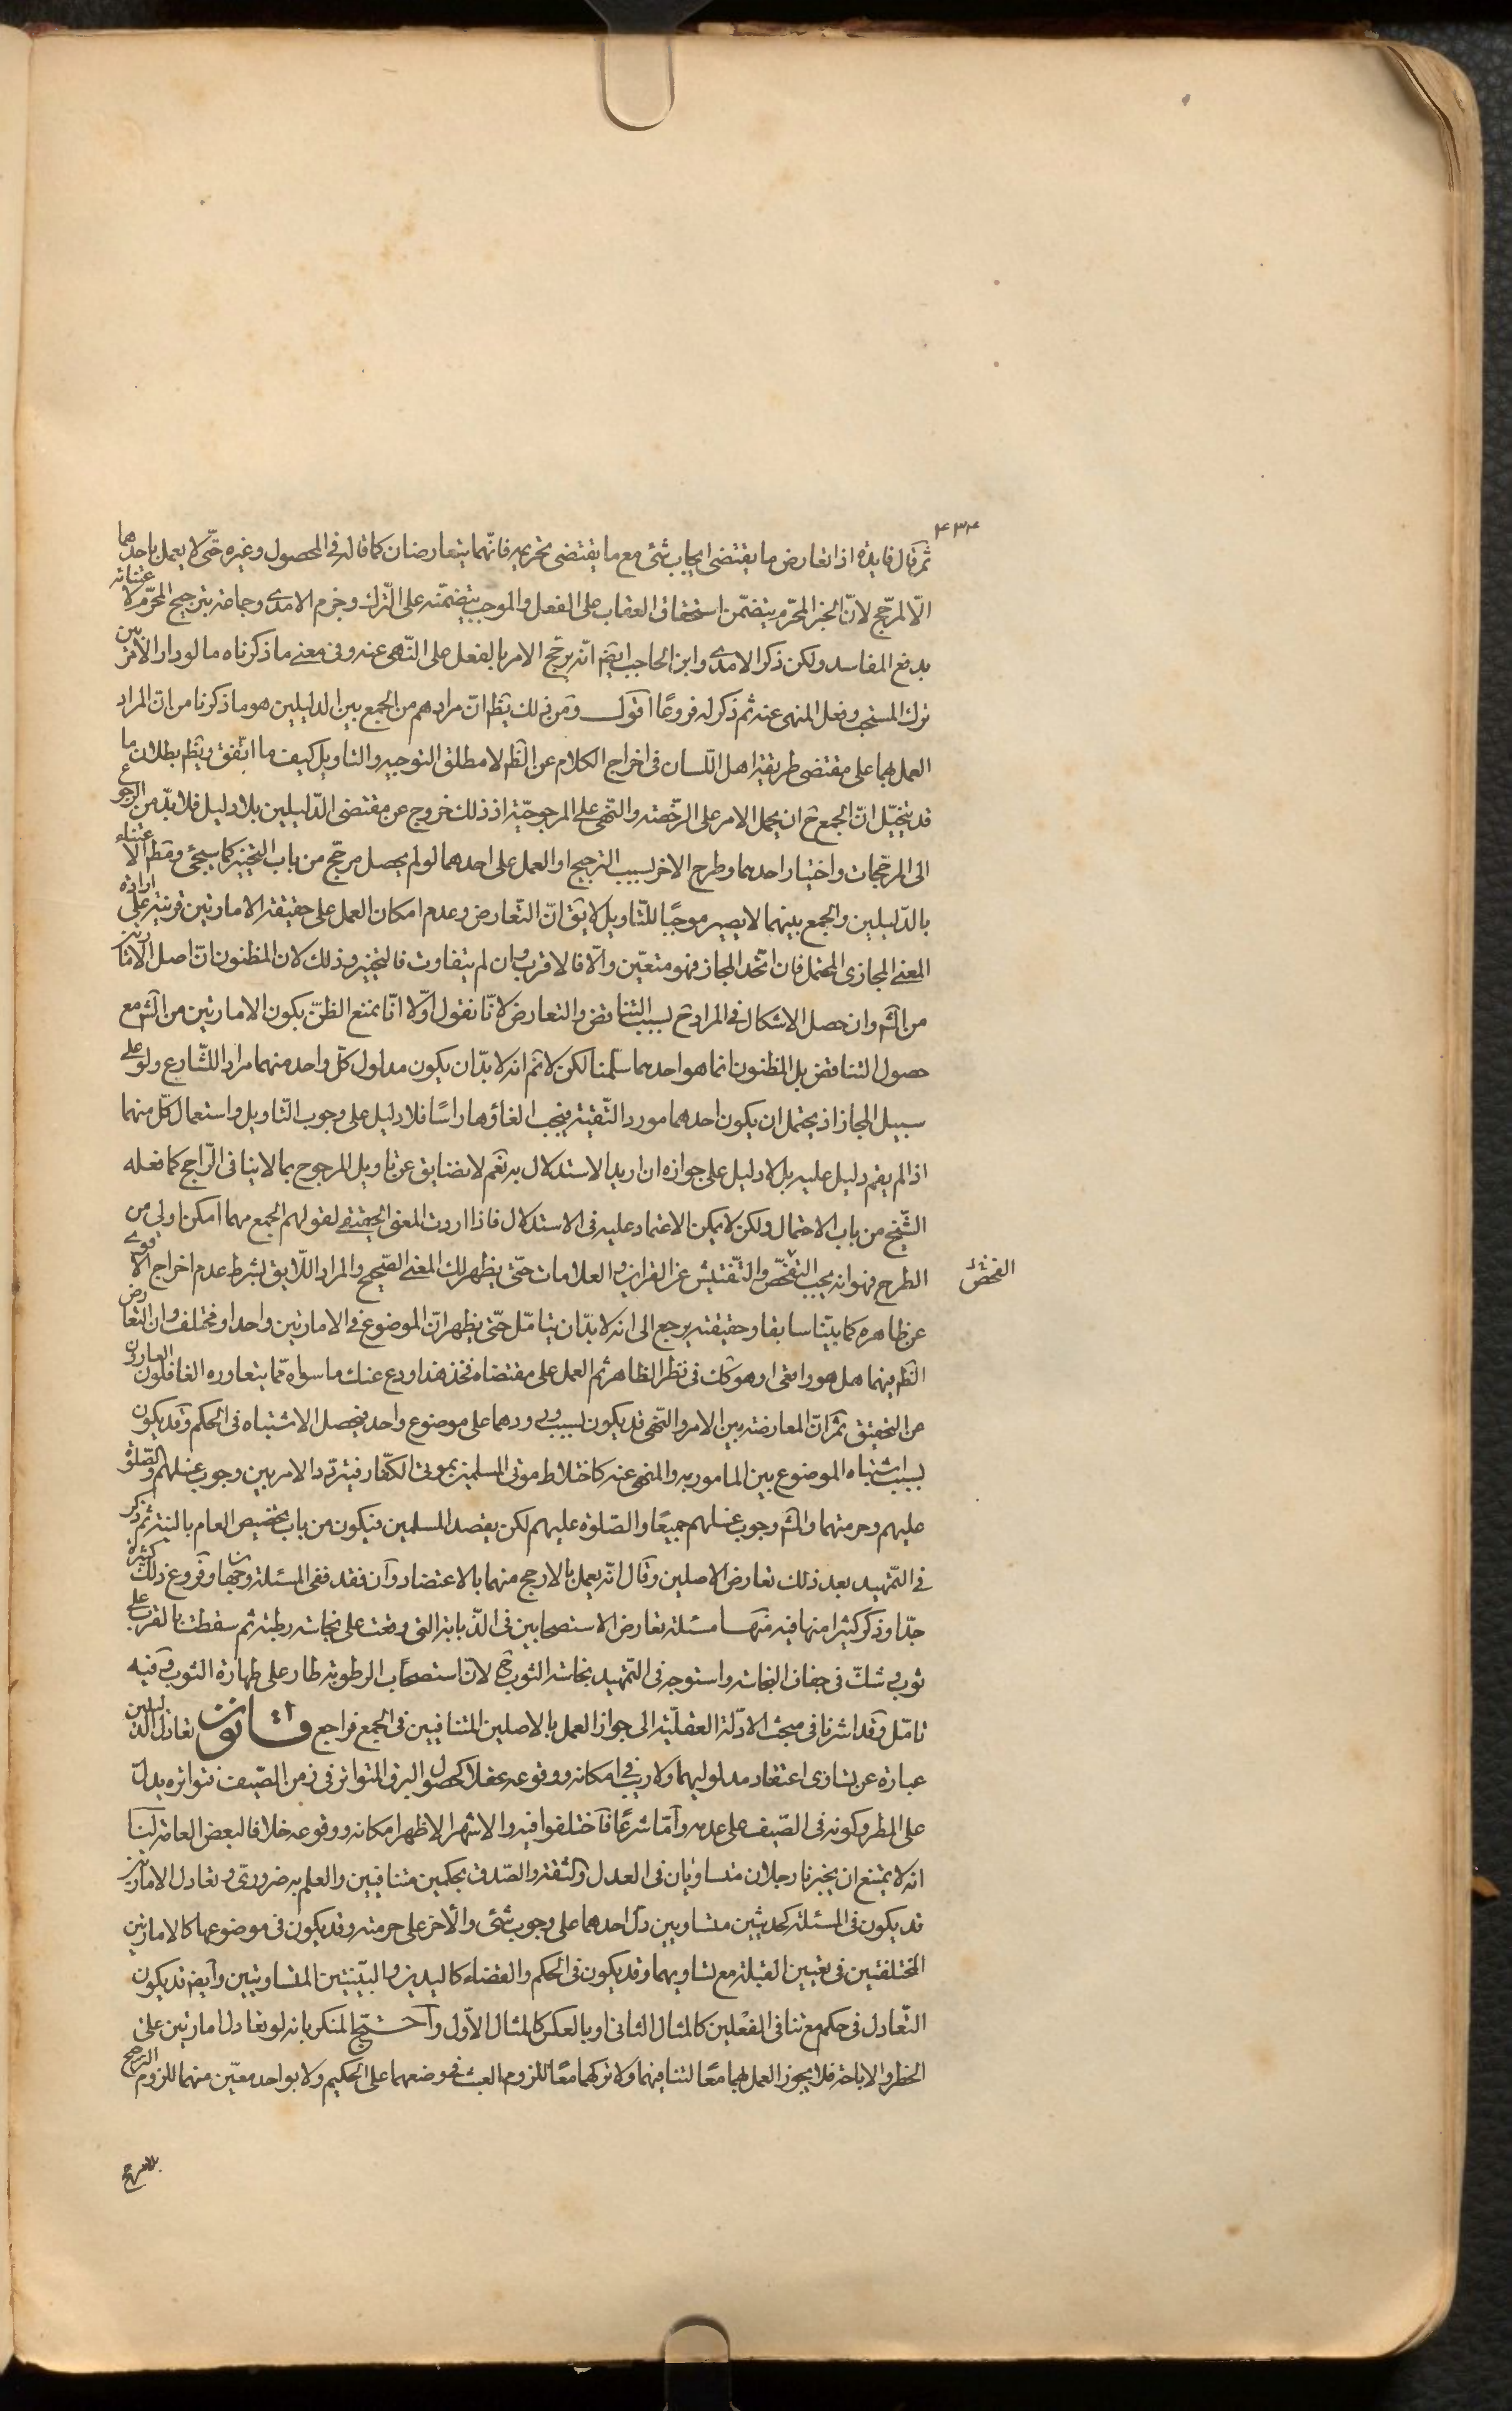 ۴۳۴
ثم قال فایدة اذا تعارض ما یقتضی ایجاب شئ مع ما یقتضی تحریمه فانّهما یتعارضان کما قاله فی المحصول وغیره حتّی لا یعمل باحدهما
الّا لمرجّح لانّ الخبر المحرّم یتضمّن استحقاق العقاب علی الفعل والموجب یتضمّنه علی التّرک وجزم الامدی وجماعة بترجیح المحرّم لاعتنائه
بدفع المفاسد ولکن ذکر الامدی وابن الحاجب ایضا انّه یرجّح الامر بالفعل علی النّهی عنه وفی معنی ما ذکرناه ما لو دار الامر بین
ترک المستحب وفعل المنهی عنه ثم ذکر له فروعًا اقول ومن ذلک یظهر انّ مرادهم من الجمع بین الدلیلین هو ما ذکرنا من انّ المراد
العمل بهما علی مقتضی طریقة اهل اللّسان فی اخراج الکلام عن الظّم لا مطلق التوجیه والتاویل کیف ما اتّفق ویظهر بطلان ما
قد یتخیّل انّ الجمع ح ان یحمل الامر علی الرّخصة والنّهی علی المرجوحیّة اذ ذلک خروج عن مقتضی الدّلیلین بلا دلیل فلا بدّ من الرجوع
الی المرجّحات واختیار احدهما وطرح الاخر لسبب الترجیح او العمل علی احدهما لو لم یحصل مرجّح من باب التخییر کما سیجئ وقط الاعتناء
بالدّلیلین والجمع بینهما لا یصیر موجبًا للتّاویل لا یق انّ التّعارض وعدم امکان العمل علی حقیقة الامارتین قرینة علی ارادة
المعنی المجازی المحتمل فان اتّحد المجاز فهو متعیّن والّا فالاقرب وان لم یتفاوت فالتخییر وذلک لان المظنون انّ اصل الامارتین
من الشّ وان حصل الاشکال فی المراد ح بسبب التناقض والتعارض لانّا نقول اوّلا انّا نمنع الظنّ بکون الامارتین من الش مع
حصول التناقض بل المظنون انما هو احدهما سلّمنا لکن لا نم انه لا بدّ ان یکون مدلول کلّ واحد منهما مراد الشّارع ولو علی
سبیل المجاز اذ یحتمل ان یکون احدهما مورد التّقیة فیجب الغاؤها راسًا فلا دلیل علی وجوب التّاویل واستعمال کلّ منهما
اذا لم یقم دلیل علیه بل لا دلیل علی جوازه ان ارید الاستدلال به نعم لا نضایق عن تاویل المرجوح بما لا ینافی الرّاجح کما فعله
الشّیخ من باب الاحتمال ولکن لا یمکن الاعتماد علیه فی الاستدلال فاذا اردت المعنی الحقیقی لقولهم الجمع مهما امکن اولی من
الطرح فهو انه یجب التفحّص والتّفتیش عن القراین والعلامات حتّی یظهر لک المعنی الصّحیح والمراد اللّایق بشرط عدم اخراج الاقوی
عن ظاهره کما بیّنّا سابقا وحقیقته یرجع الی انه لا بدّ ان یتامّل حتّی یظهر انّ الموضوع فی الامارتین واحد او مختلف وان التعارض
الظّ فیهما هل هو واقعی او هو کک فی نظر الظاهر ثم العمل علی مقتضاه فخذ هذا ودع عنک ما سواه ممّا یتعاوره الغافلون العارون
عن التحقیق ثمّ انّ المعارضة بین الامر والنّهی قد یکون بسبب ورودهما علی موضوع واحد فیحصل الاشتباه فی الحکم وقد یکون
بسبب اشتباه الموضوع بین المامور به والمنهی عنه کاختلاط موتی المسلمین بموتی الکفّار فیتردّد الامر بین وجوب غسلهم والصّلوة
علیهم وحرمتهما والش وجوب غسلهم جمیعًا والصّلوة علیهم لکن یقصد المسلمین فیکون من باب تخصیص العام بالنیّة ثم ذکر
فی التّمهید بعد ذلک تعارض الاصلین وقال انّه یعمل بالارجح منهما بالاعتضاد وان فقد ففی المسئلة وجهان وفروع ذلک کثیرة
جدّا وذکر کثیرا منها فیه منها مسئلة تعارض الاستصحابین فی الذّبابة التی وقعت علی نجاسة رطبة ثم سقطت بالقرب علی
ثوب وشکّ فی جفاف النجاسة واستوجه فی التّمهید نجاسة الثوب ح لانّ استصحاب الرطوبة طار علی طهارة الثوب وفیه
تامّل وقد اشرنا فی مبحث الادلّة العقلیّة الی جواز العمل بالاصلین المتنافیین فی الجمع فراجع قانون تعادل الدلیلین
عبارة عن تساوی اعتقاد مدلولیهما ولا ریب فی امکانه ووقوعه عقلا کحصول البرق المتواتر فی زمن الصّیف فتواتره یدلّ
علی المطر وکونه فی الصّیف علی عدمه وامّا شرعًا فاختلفوا فیه والاشهر الاظهر امکانه ووقوعه خلافا لبعض العامة لنا
انه لا یمتنع ان یخبرنا رجلان متساویان فی العدل والثقة والصّدق بحکمین متنافیین والعلم به ضروریّ وتعادل الامارتین
قد یکون فی المسئلة کحدیثین متساویین دلّ احدهما علی وجوب شئ والاخر علی حرمته وقد یکون فی موضوعها کالامارتین
المختلفتین فی تعیین القبلة مع تساویهما وقد یکون فی الحکم والقضاء کالیدین والبیّنتین المتساویتین وایض قد یکون
التّعادل فی حکم مع تنافی الفعلین کالمثال الثانی او بالعکس کالمثال الاوّل واحتجّ المنکر بانه لو تعادل امارتین علی
الحظر والاباحة فلا یجوز العمل بهما معًا لتنافیهما ولا ترکهما معًا للزوم العبث فی وضعهما علی الحکیم ولا بواحد معیّن منهما للزوم الترجیح
بلا مرجح